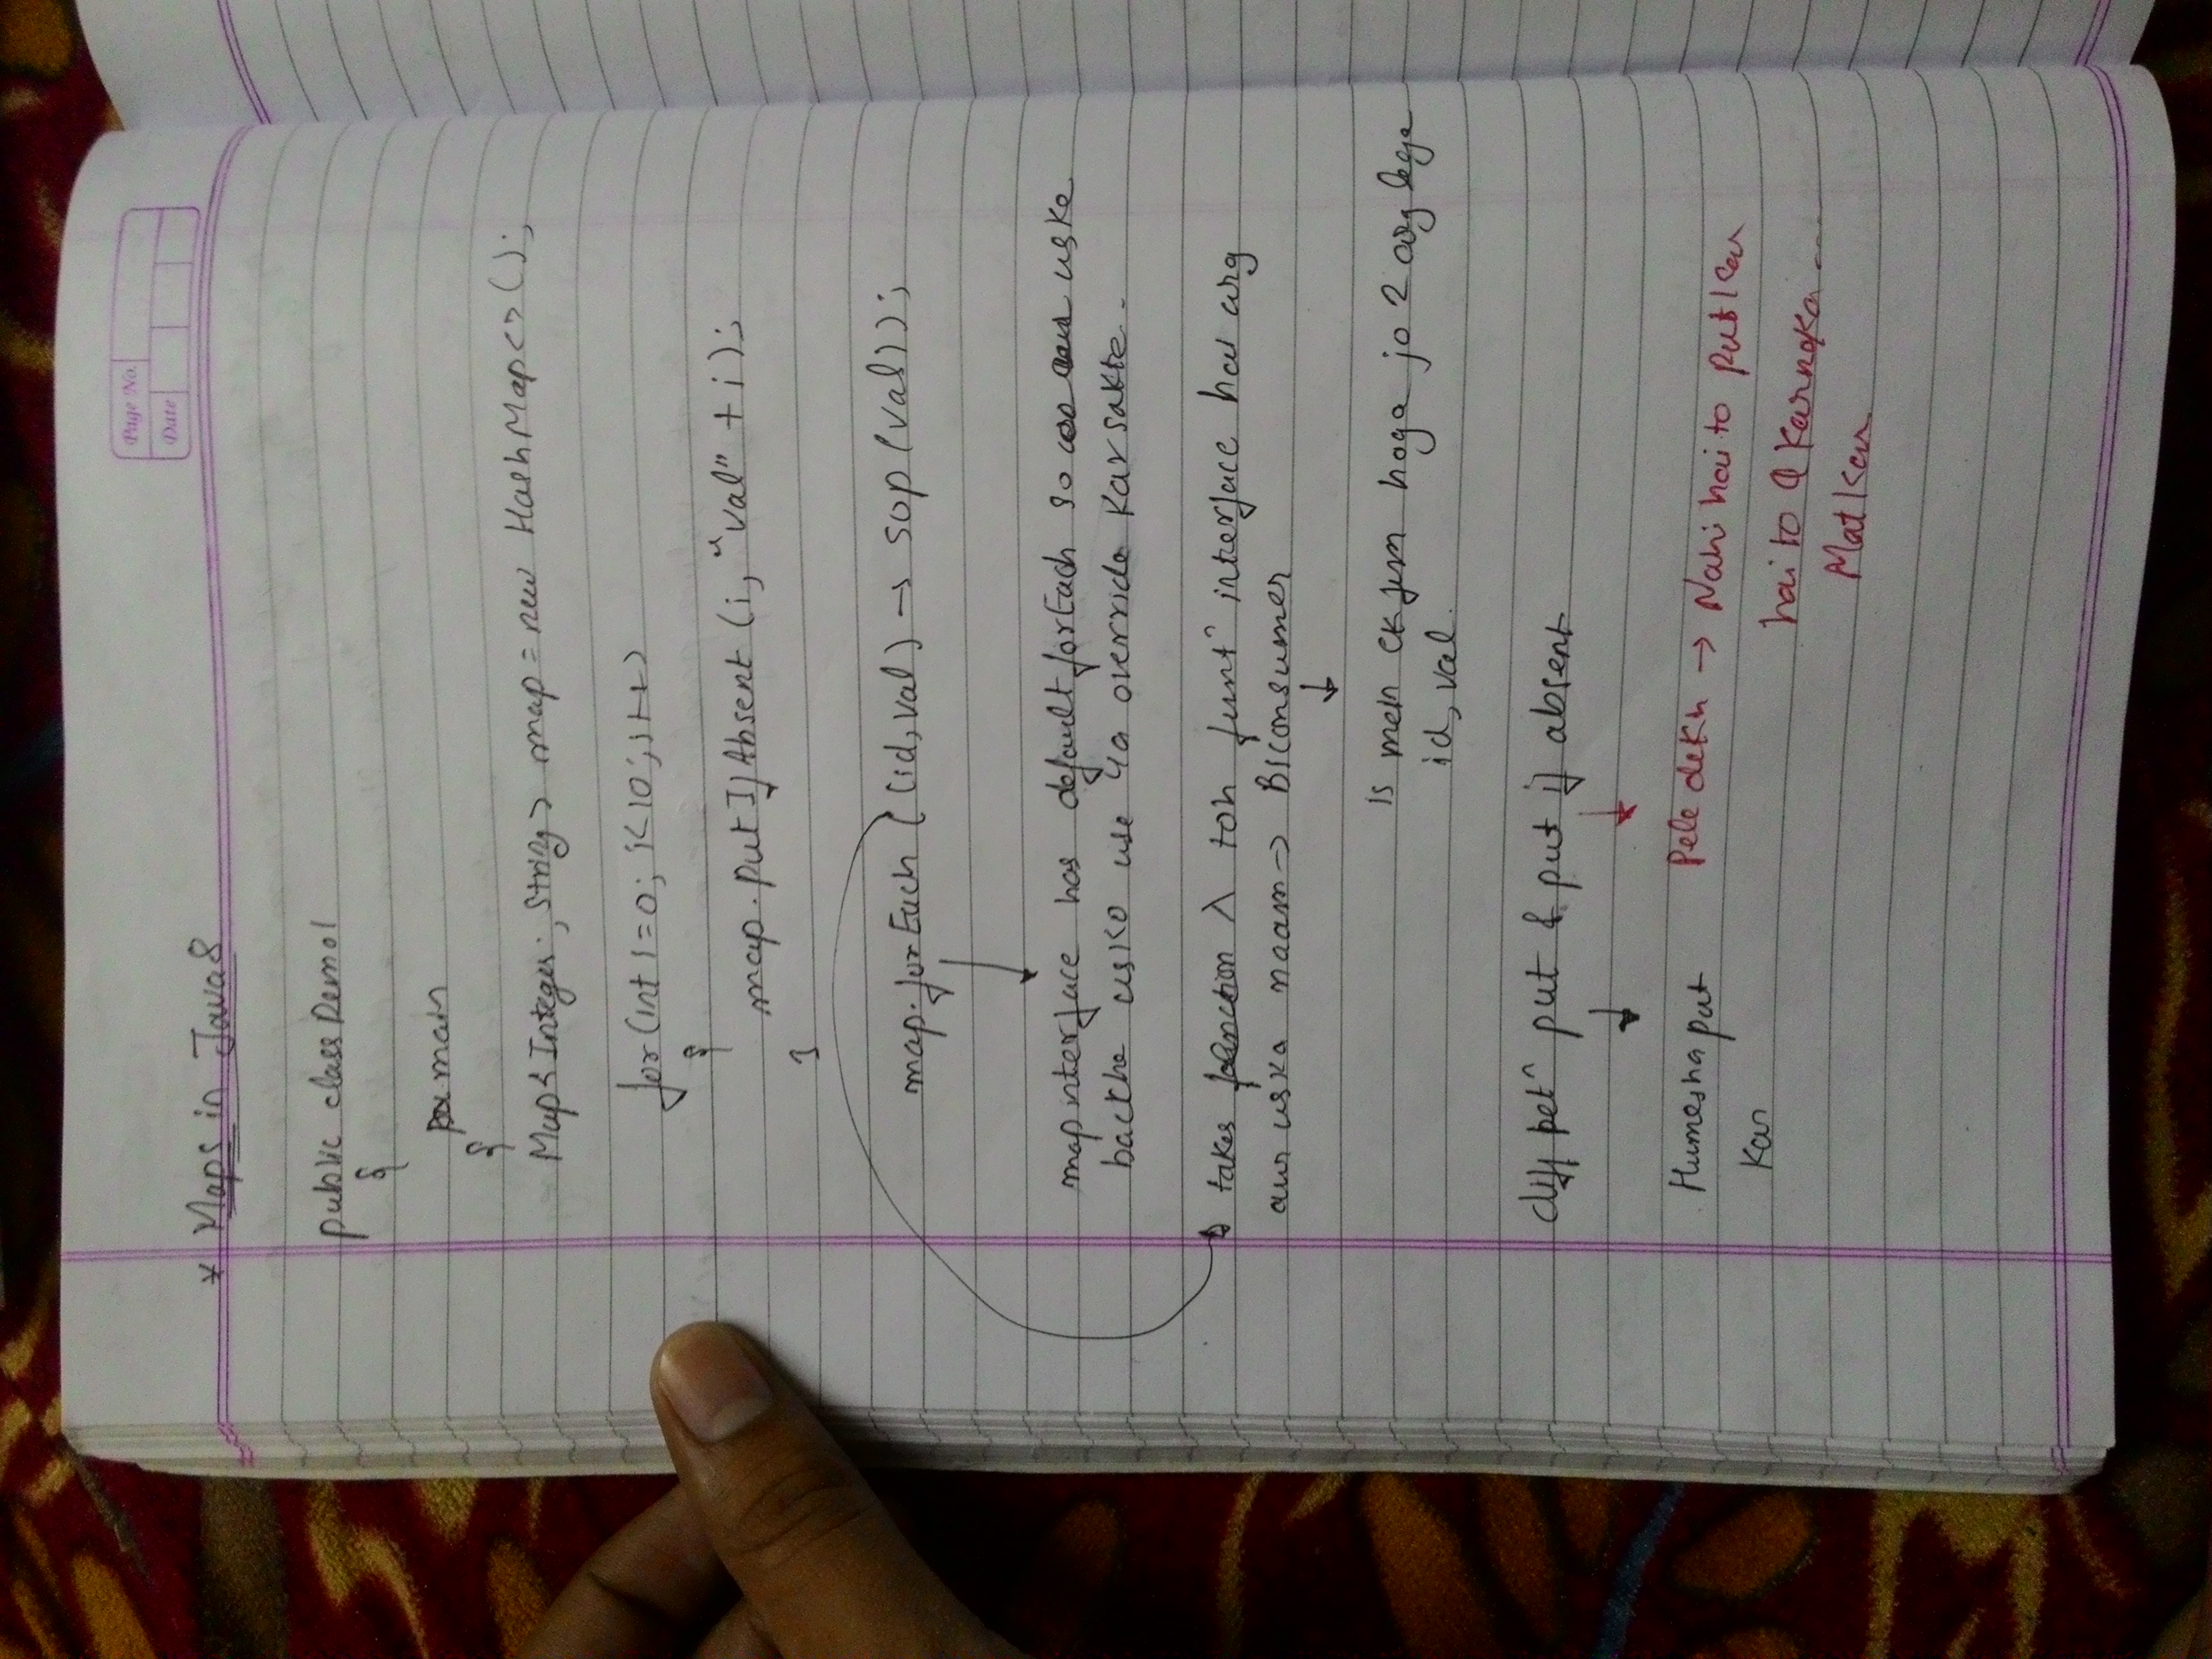 Page No.
Date
* Maps in Java8
public class Demo1
{
main
{
Map<Integer, String> map = new HashMap<>();
for(int i=0; i<10; i++)
{
map.putIfAbsent (i, "val" + i);
}
map.forEach ((id,val) → sop(val));
map interface has default forEach so uske
bacche usko use ya override kar sakte.
takes function λ toh funt^n interface hai arg
aur uska naam → Biconsumer
is mein ek fun hoga jo 2 arg lega
id, val.
diff bet^n put & put if absent
Humesha put
kar
Pele dekh → Nahi hai to put kar
hai to karneka ....
Mat kar